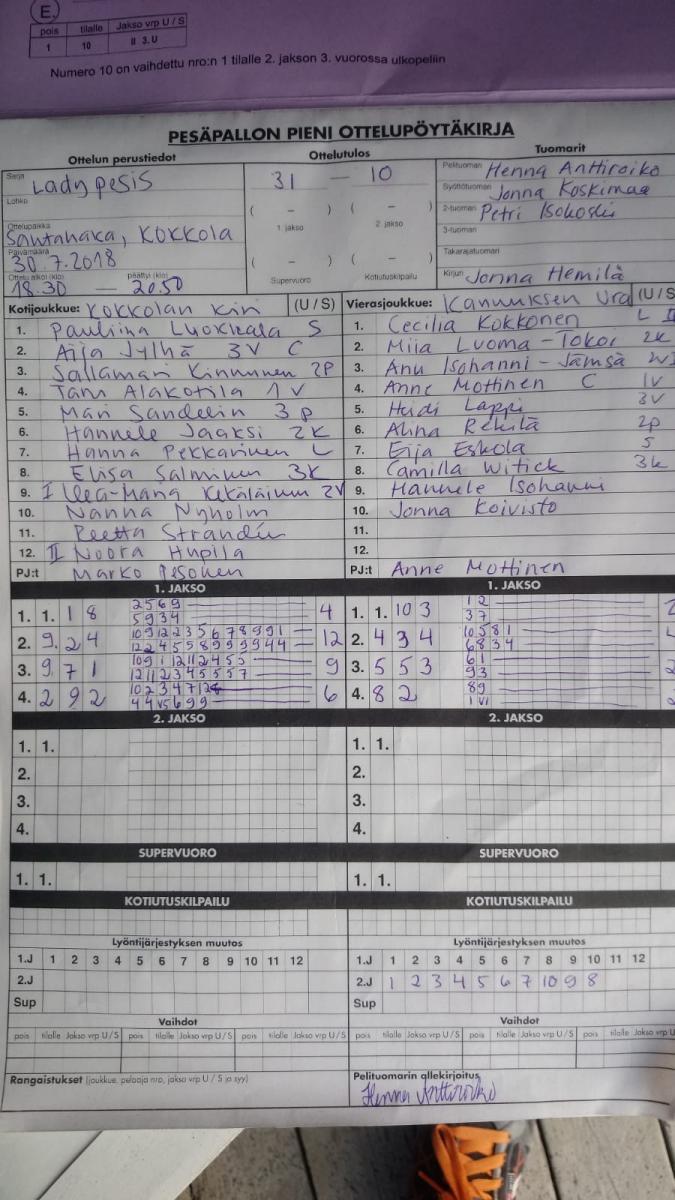 E.
pois tilalle Jakso vrp U / S
1 10 II 3. U
Numero 10 on vaihdettu nro:n 1 tilalle 2. jakson 3. vuorossa ulkopeliin
PESÄPALLON PIENI OTTELUPÖYTÄKIRJA
Ottelun perustiedot Ottelutulos Tuomarit
Sarja Ladypesis 31 – 10 Pelituomari Henna Anttiroiko
Lohko ( – ) ( – ) Syöttötuomari Jonna Koskimaa
1. jakso 2. jakso 2-tuomari Petri Isokoski
Ottelupaikka Santahaka, Kokkola 3-tuomari
Päivämäärä 30.7.2018 ( – ) ( – ) Takarajatuomari
Ottelu alkoi (klo) 18.30 – päättyi (klo) 20.50 Supervuoro Kotiutuskilpailu Kirjuri Jonna Hemilä
Kotijoukkue: Kokkolan Kiri (U / S) Vierasjoukkue: Kannuksen Ura (U / S)
1. Pauliina Luokkala S 1. Cecilia Kokkonen L
2. Aija Jylhä 3V C 2. Miia Luoma-Tokoi 2k
3. Sallamari Kinnunen 2P 3. Anu Isohanni-Jämsä
4. Tanu Alakotila 1V 4. Anne Mottinen C 1V
5. Mari Sandelin 3p 5. Heidi Lappi 3V
6. Hannele Jaaksi 2k 6. Alina Rekilä 2p
7. Hanna Pekkarinen L 7. Eija Eskola S
8. Elisa Salminen 3k 8. Camilla Witick 3k
9. I Kekäläinen 2V 9. Hannele Isohanni
10. Nanna Nyholm 10. Jonna Koivisto
11. Reetta Strandén 11.
12. II Noora Huplla 12.
PJ:t Marko Pesonen PJ:t Anne Mottinen
1. JAKSO 1. JAKSO
1. 1. 1 8 2569 4 1. 1. 10 3 12
5934 37
2. 9 2 4 12 2. 4 3 4 10581
6834
3. 9 7 1 9 3. 5 5 3 61
93
4. 2 9 2 6 4. 8 2 89
1 VI
2. JAKSO 2. JAKSO
1. 1. 1. 1.
2. 2.
3. 3.
4. 4.
SUPERVUORO SUPERVUORO
1. 1. 1. 1.
KOTIUTUSKILPAILU KOTIUTUSKILPAILU
Lyöntijärjestyksen muutos Lyöntijärjestyksen muutos
1.J 1 2 3 4 5 6 7 8 9 10 11 12 1.J 1 2 3 4 5 6 7 8 9 10 11 12
2.J 2.J 1 2 3 4 5 6 7 10 9 8
Sup Sup
Vaihdot Vaihdot
pois tilalle Jakso vrp U / S pois tilalle Jakso vrp U / S pois tilalle Jakso vrp U / S pois tilalle Jakso vrp U / S
Rangaistukset (joukkue, pelaaja nro, jakso vrp U / S ja syy) Pelituomarin allekirjoitus
Henna Anttiroiko